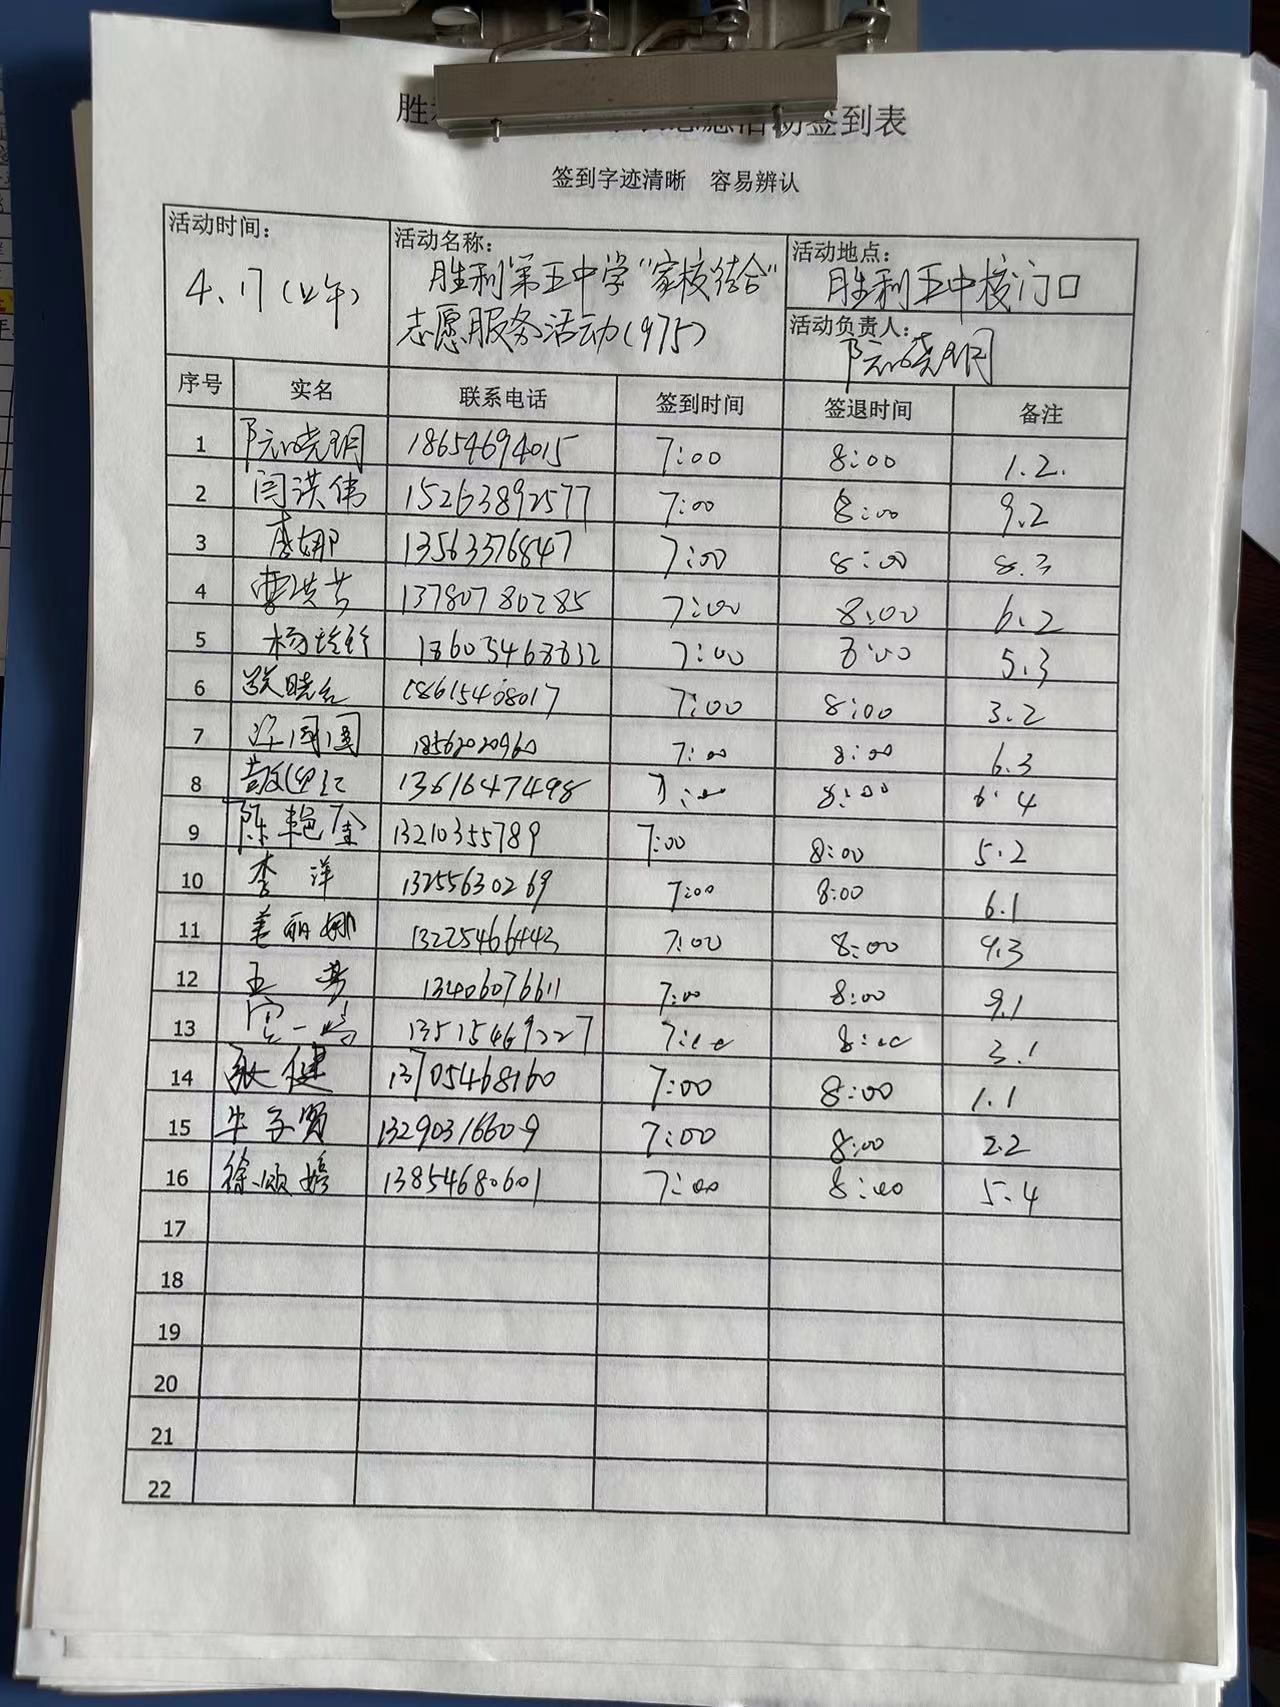 胜
志愿活动签到表
签到字迹清晰 容易辨认
活动时间: 活动名称: 活动地点:
4.17(上午) 胜利第五中学"家校结合" 胜利五中校门口
志愿服务活动(975) 活动负责人:
阮晓玥
序号 实名 联系电话 签到时间 签退时间 备注
1 阮晓玥 18654694015 7:00 8:00 1.2.
2 闫洪伟 15263892577 7:00 8:00 9.2
3 唐娜 13563376847 7:00 8:00 8.3
4 曹洪芳 13780780285 7:00 8:00 6.2
5 杨 18605468832 7:00 8:00 5.3
6 晓 18615408017 7:00 8:00 3.2
7 国 18562020960 7:00 8:00 6.3
8 13616474498 7:00 8:00 6.4
9 陈艳 13210355789 7:00 8:00 5.2
10 李洋 13255630269 7:00 8:00 6.1
11 姜丽娜 13225466443 7:00 8:00 9.3
12 王 13406076611 7:00 8:00 9.1
13 一 13515469227 7:00 8:00 3.1
14 张健 13705468160 7:00 8:00 1.1
15 牛 13290316609 7:00 8:00 2.2
16 徐颂婷 13854680601 7:00 8:00 5.4
17
18
19
20
21
22